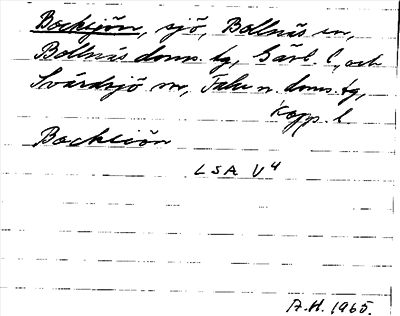 Bocksjön, sjö, Bollnäs sn,
Bollnäs doms. tg, Gävl. l., och
Svärdsjö sn, Falu n. doms. tg,
Kopp. l
Bocksiön
LSA V4
A.H. 1965.